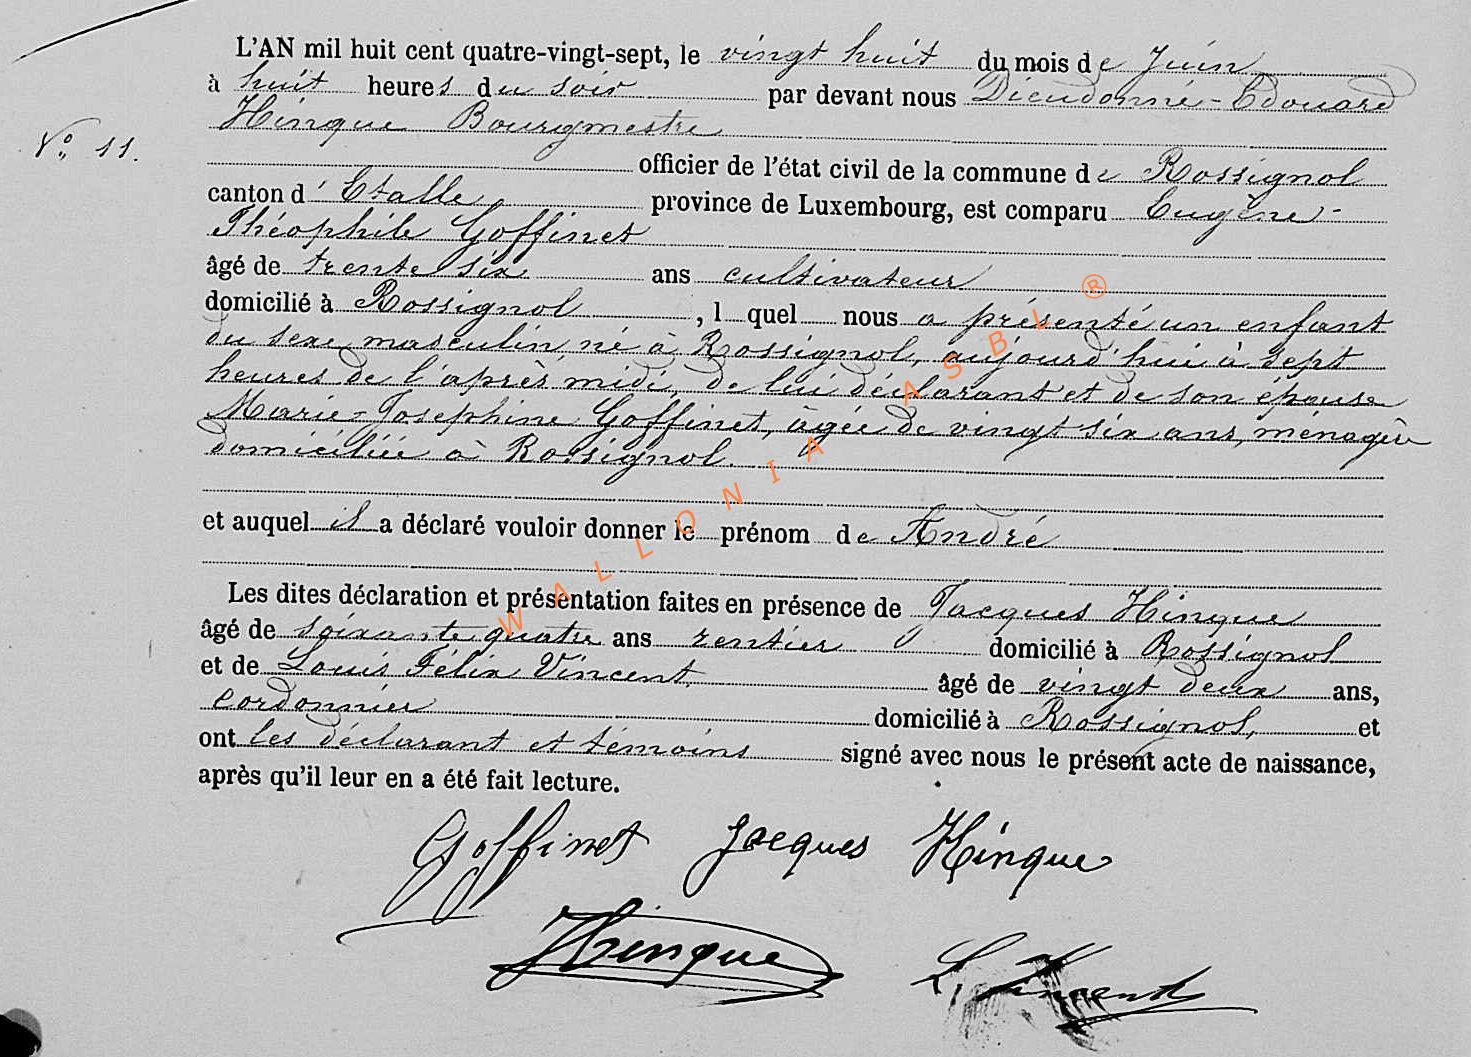 L'AN mil huit cent quatre-vingt-sept, le vingt huit du mois de Juin
à huit heures du soir par devant nous Dieudonné-Edouard
Hinque Bourgmestre
N° 11.
officier de l'état civil de la commune de Rossignol
canton d'Etalle, province de Luxembourg, est comparu Eugène-
Théophile Goffinet
âgé de trente six ans cultivateur
domicilié à Rossignol, l quel nous a présenté un enfant
du sexe masculin, né à Rossignol, aujourd'hui à sept
heures de l'après midi, de lui déclarant et de son épouse
Marie-Josephine Goffinet, âgée de vingt six ans, ménagère
domiciliée à Rossignol.
et auquel il a déclaré vouloir donner le prénom de André
Les dites déclaration et présentation faites en présence de Jacques Hinque
âgé de soixante quatre ans rentier domicilié à Rossignol
et de Louis Félix Vincent âgé de vingt deux ans,
cordonnier domicilié à Rossignol, et
ont les déclarant et témoins signé avec nous le présent acte de naissance,
après qu'il leur en a été fait lecture.
Goffinet Jacques Hinque
Hinque L. Vincent
WALLONIA ASBL ®